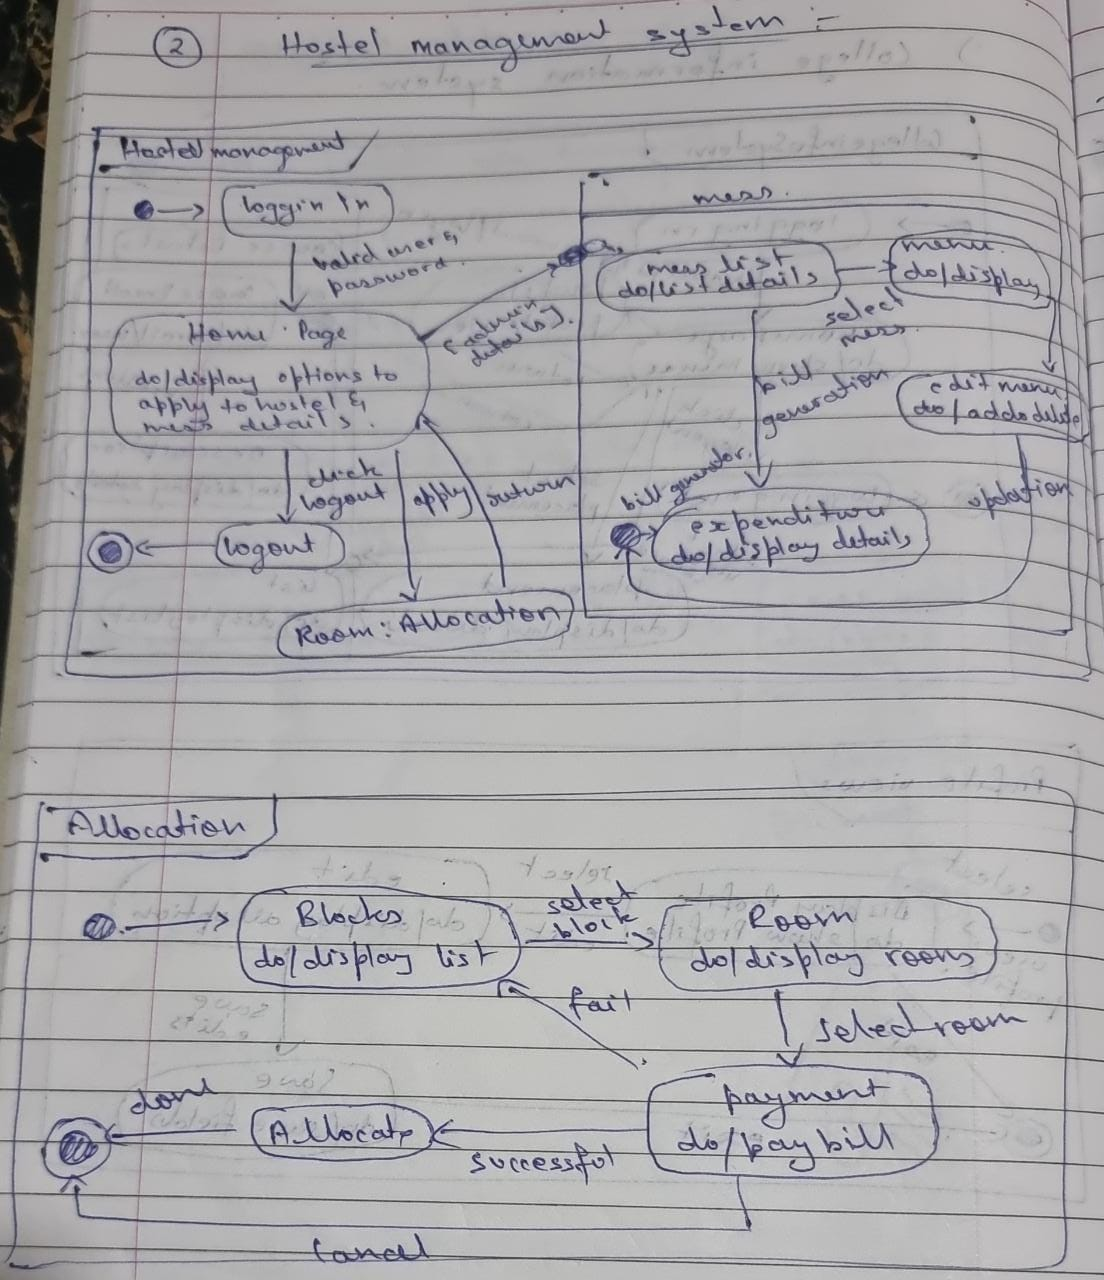 2
Hostel management system :-
Hostel management
loggin In
valid user &
password.
Home Page
do/display options to
apply to hostel &
mess details.
[admin
details].
click
logout
logout
apply
return
Room : Allocation
mess.
mess list
do/list details
menu
do/display
select
mess.
bill
generation
edit menu
updation
bill generator.
do/display details
Allocation
Blocks
do/display list
select
block
Room
do/display rooms
fail
select room
payment
do/pay bill
successful
Allocate
done
Cancel